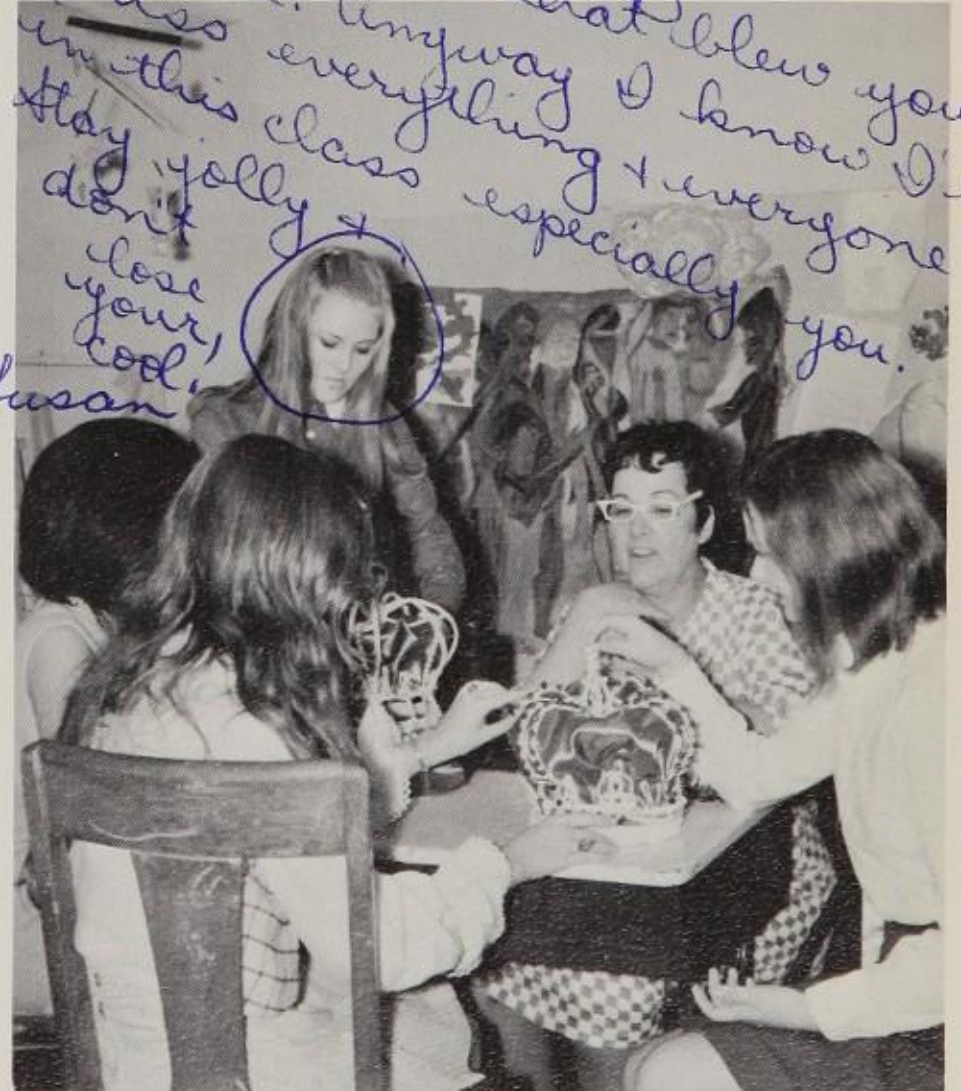 that blew you
Anyway I know I'
miss everything + everyone
in this class especially you.
Stay jolly +
don't
lose
your
cool,
Susan